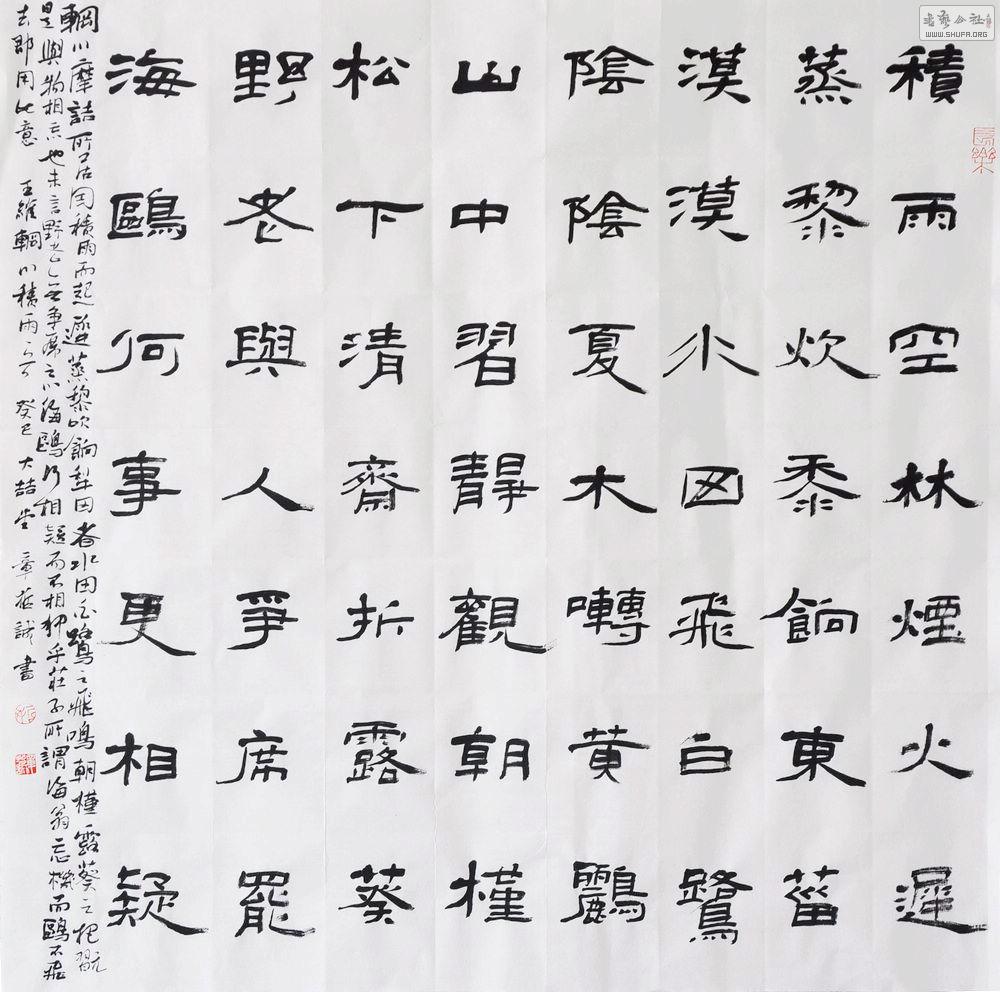 書藝公社
WWW.SHUFA.ORG
長樂
積雨空林煙火遲
蒸黎炊黍餉東菑
漠漠水田飛白鷺
陰陰夏木囀黃鸝
山中習靜觀朝槿
松下清齋折露葵
野老與人爭席罷
海鷗何事更相疑
輞川摩詰所居因積雨而起蒸黎炊餉犁田者水田白鷺之飛鳴朝槿露葵之挹翫
是與物相忘也末言野老已無爭席之心海鷗何相疑而不相狎乎莊子所謂海翁忘機而鷗不飛
去即用此意 王維輞川積雨 癸巳 大喆堂 章 誠書